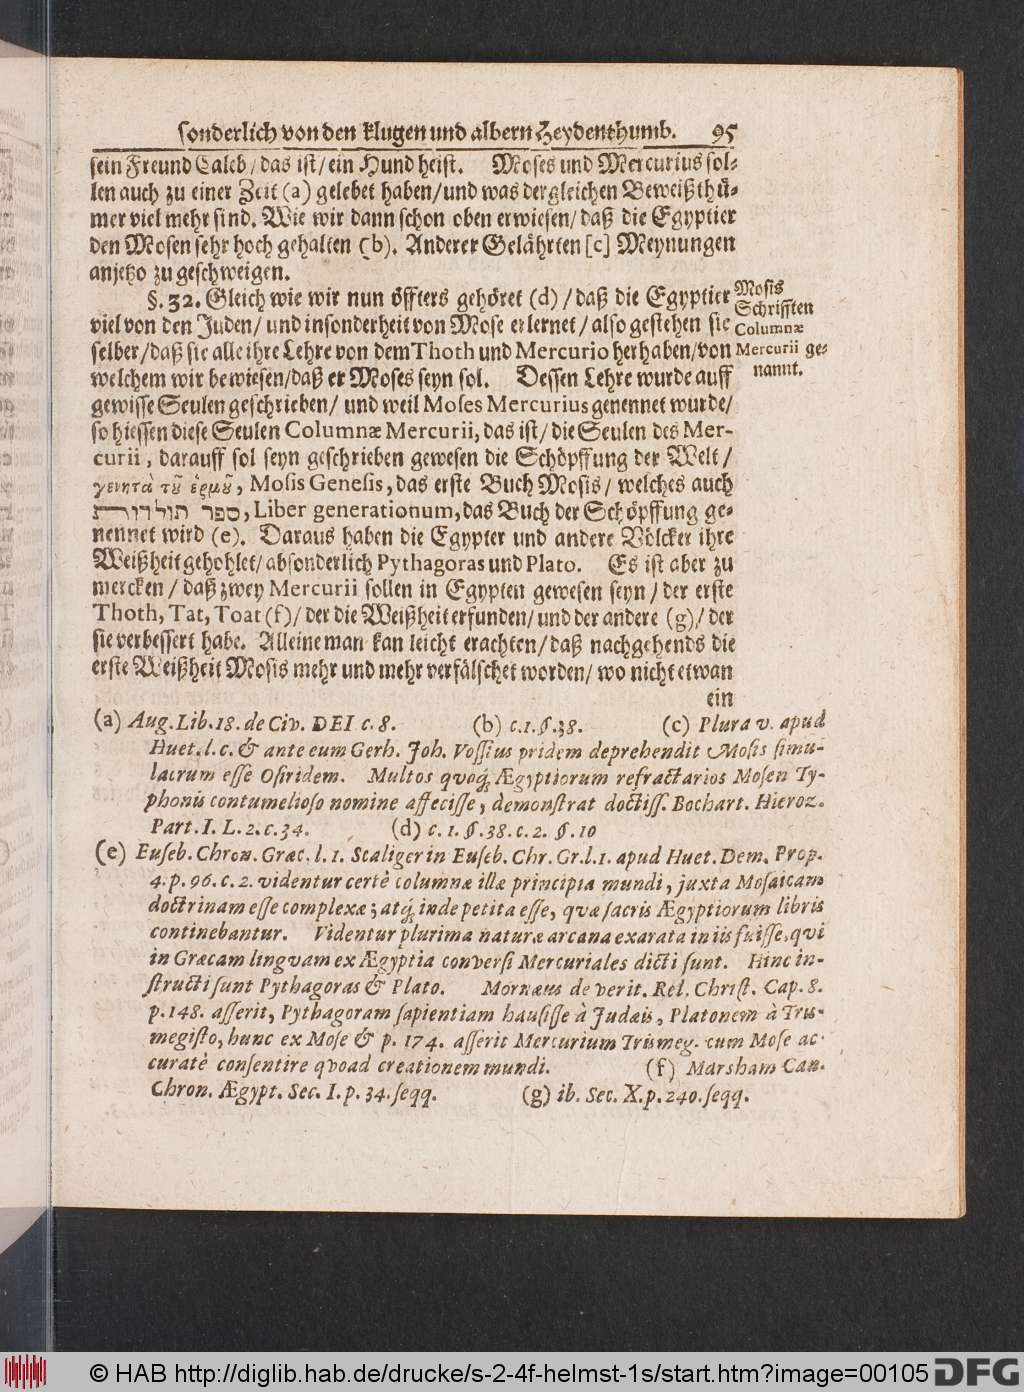 sonderlich von den klugen und albern Heydenthumb. 95
sein Freund Caleb/ das ist/ ein Hund heist. Moses und Mercurius sol-
len auch zu einer Zeit (a) gelebet haben/ und was dergleichen Beweißthü-
mer viel mehr sind. Wie wir dann schon oben erwiesen/ daß die Egyptier
den Mosen sehr hoch gehalten (b). Anderer Gelährten [c] Meynungen
anjetzo zu geschweigen.
§. 32. Gleich wie wir nun öffters gehöret (d) / daß die Egyptier
viel von den Juden/ und insonderheit von Mose erlernet/ also gestehen sie
selber/ daß sie alle ihre Lehre von dem Thoth und Mercurio herhaben/ von
welchem wir bewiesen/ daß er Moses seyn sol. Dessen Lehre wurde auff
gewisse Seulen geschrieben/ und weil Moses Mercurius genennet wurde/
so hiessen diese Seulen Columnæ Mercurii, das ist/ die Seulen des Mer-
curii, darauff sol seyn geschrieben gewesen die Schöpffung der Welt/
γενητὰ τȣ͂ ἑρμȣ͂, Mosis Genesis, das erste Buch Mosis/ welches auch
ספר תולדות, Liber generationum, das Buch der Schöpffung ge-
nennet wird (e). Daraus haben die Egypter und andere Völcker ihre
Weißheit gehohlet/ absonderlich Pythagoras und Plato. Es ist aber zu
mercken/ daß zwey Mercurii sollen in Egypten gewesen seyn/ der erste
Thoth, Tat, Toat (f)/ der die Weißheit erfunden/ und der andere (g)/ der
sie verbessert habe. Alleine man kan leicht erachten/ daß nachgehends die
erste Weißheit Mosis mehr und mehr verfälschet worden/ wo nicht etwan
ein
Mosis
Schrifften
Columnæ
Mercurii ge-
nannt.
(a) Aug. Lib. 18. de Civ. DEI c. 8. (b) c. 1. §. 38. (c) Plura v. apud
Huet. l. c. & ante eum Gerh. Joh. Vossius pridem deprehendit Mosis simu-
lacrum esse Osiridem. Multos quoq; Ægyptiorum refractarios Mosen Ty-
phonis contumelioso nomine affecisse, demonstrat doctiss. Bochart. Hieroz.
Part. I. L. 2. c. 34. (d) c. 1. §. 38. c. 2. §. 10
(e) Euseb. Chron. Græc. l. 1. Scaliger in Euseb. Chr. Gr. l. 1. apud Huet. Dem. Prop.
4. p. 96. c. 2. videntur certè columnæ illæ principia mundi, juxta Mosaicam
doctrinam esse complexæ; atq; inde petita esse, qvæ sacris Ægyptiorum libris
continebantur. Videntur plurima naturæ arcana exarata in iis fuisse, qvi
in Græcam lingvam ex Ægyptia conversi Mercuriales dicti sunt. Hinc in-
structi sunt Pythagoras & Plato. Mornæus de verit. Rel. Christ. Cap. 8.
p. 148. asserit, Pythagoram sapientiam hausisse à Judæis, Platonem à Tris-
megisto, hunc ex Mose & p. 174. asserit Mercurium Trismeg. cum Mose ac-
curatè consentire qvoad creationem mundi. (f) Marsham Can.
Chron. Ægypt. Sec. I. p. 34. seqq. (g) ib. Sec. X. p. 240. seqq.
© HAB http://diglib.hab.de/drucke/s-2-4f-helmst-1s/start.htm?image=00105 DFG